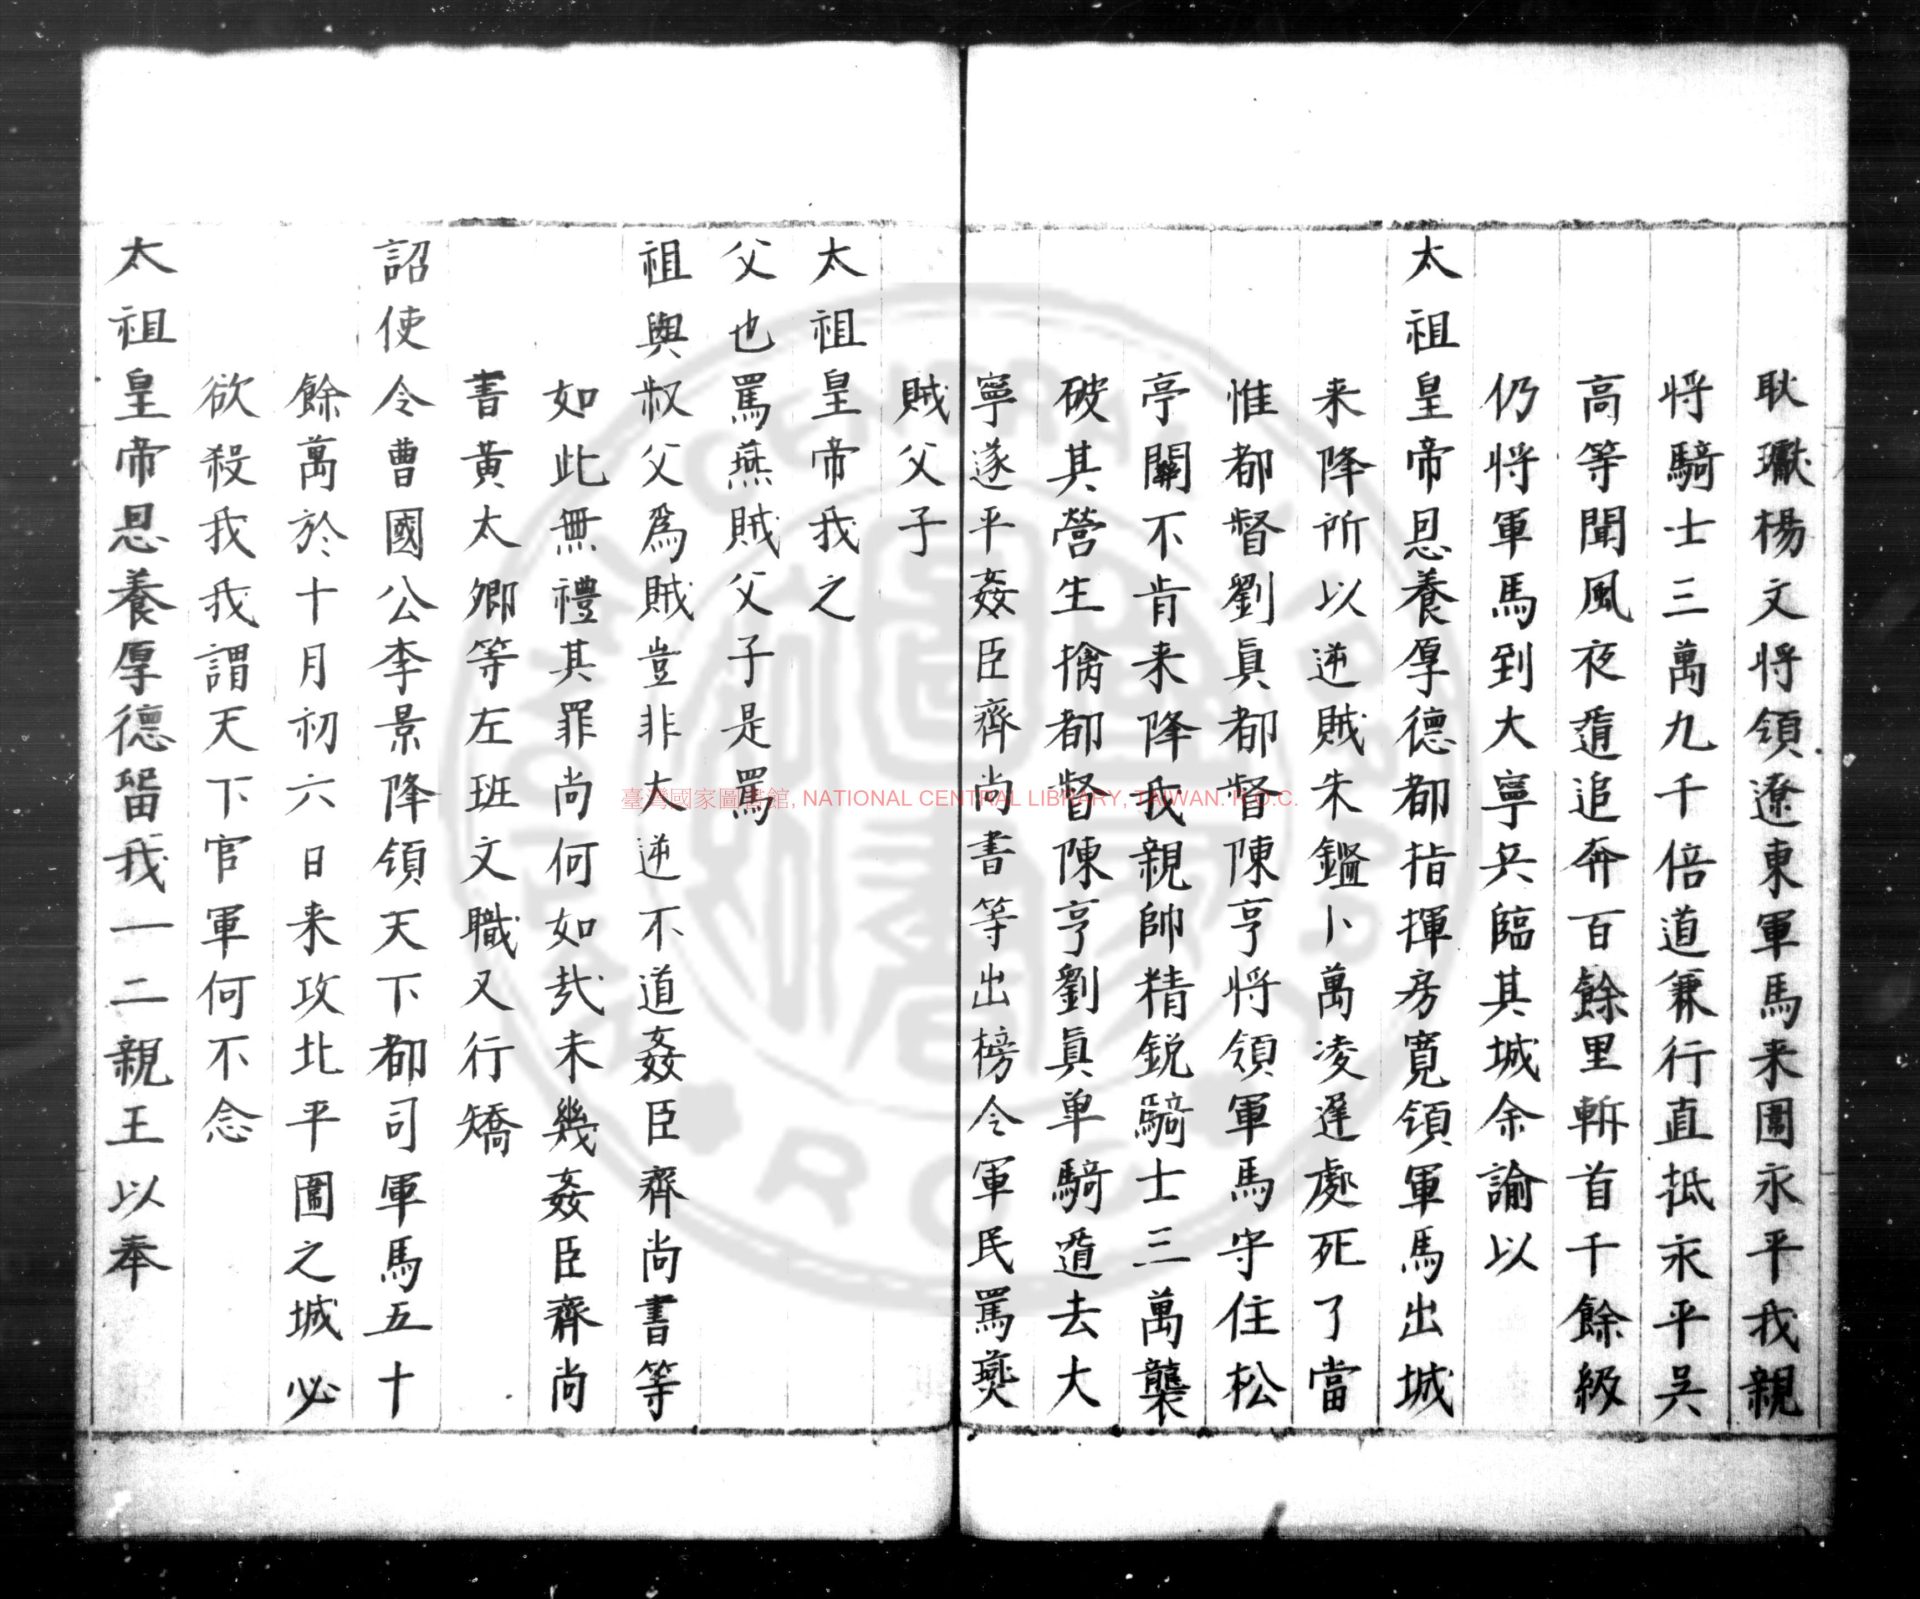 耿瓛楊文將領遼東軍馬来圍永平我親
将騎士三萬九千倍道兼行直抵永平吳
高等聞風夜遁追奔百餘里斬首千餘級
仍將軍馬到大寧兵臨其城余諭以
太祖皇帝恩養厚德都指揮房寬領軍馬出城
来降所以逆賊朱鑑卜萬凌遲處死了當
惟都督劉眞都督陳亨将領軍馬守住松
亭關不肯来降我親帥精鋭騎士三萬襲
破其營生擒都督陳亨劉眞单騎遁去大
寧遂平姦臣齊尚書等出榜令軍民罵燕
賊父子
太祖皇帝我之
父也罵燕賊父子是罵
祖與叔父爲賊豈非大逆不道姦臣齊尚書等
如此無禮其罪尚何如哉未幾姦臣齊尚
書黃太卿等左班文職又行矯
詔使令曹國公李景降領天下都司軍馬五十
餘萬於十月初六日来攻北平圍之城必
欲殺我我謂天下官軍何不念
太祖皇帝恩養厚德留我一二親王以奉
臺灣國家圖書館, NATIONAL CENTRAL LIBRARY, TAIWAN. R.O.C.